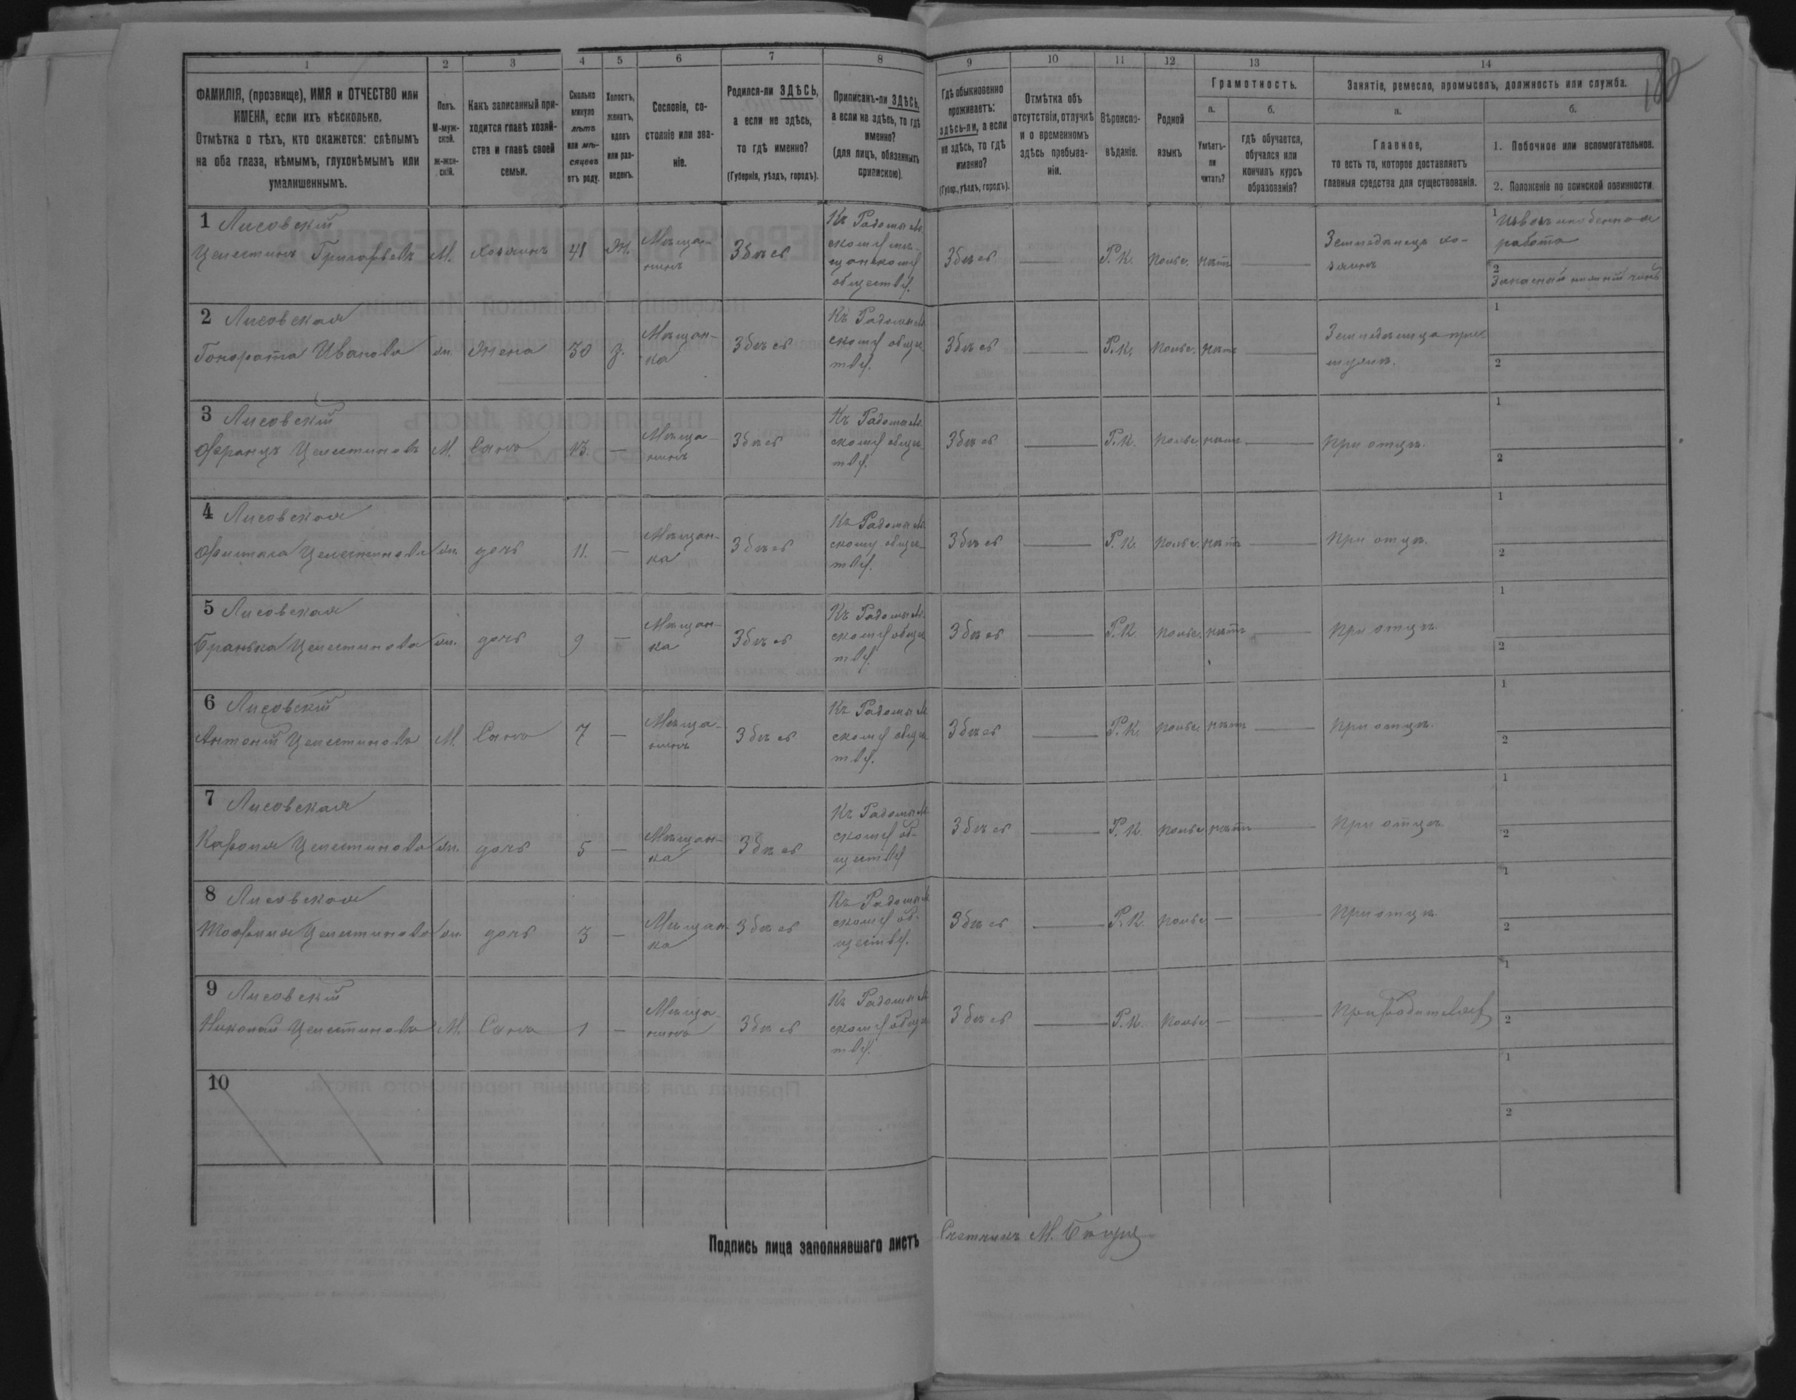 1 2 3 4 5 6 7 8 9 10 11 12 13 14
ФАМИЛІЯ, (прозвище), ИМЯ и ОТЧЕСТВО или
ИМЕНА, если ихъ нѣсколько.
Отмѣтка о тѣхъ, кто окажется: слѣпымъ
на оба глаза, нѣмымъ, глухонѣмымъ или
умалишеннымъ.
Полъ.
М-муж-
ской.
ж-жен-
скій.
Какъ записанный при-
ходится главѣ хозяй-
ства и главѣ своей
семьи.
Сколько
минуло
лѣтъ
или мѣ-
сяцевъ
отъ роду.
Холостъ,
женатъ,
вдовъ
или раз-
веденъ.
Сословіе, со-
стояніе или зва-
ніе.
Родился-ли ЗДѢСЬ,
а если не здѣсь,
то гдѣ именно?
(Губернія, уѣздъ, городъ).
Приписанъ-ли ЗДѢСЬ,
а если не здѣсь, то гдѣ
именно?
(для лицъ, обязанныхъ
припискою).
Гдѣ обыкновенно
проживаетъ:
здѣсь-ли, а если
не здѣсь, то гдѣ
именно?
(Губер, уѣздъ, городъ).
Отмѣтка объ
отсутствіи, отлучкѣ
и о временномъ
здѣсь пребыва-
ніи.
Вѣроиспо-
вѣданіе.
Родной
языкъ
Грамотность.
а. б.
Умѣетъ-
ли
читать?
гдѣ обучается,
обучался или
кончилъ курсъ
образованія?
Занятіе, ремесло, промыселъ, должность или служба.
а. б.
Главное,
то есть то, которое доставляетъ
главныя средства для существованія.
1. Побочное или вспомогательное.
2. Положеніе по воинской повинности.
1 Лисовскій
Целестинъ Григорьевъ М. Хозяинъ 41 Ж.
Мѣща-
нинъ
Здѣсь
Къ Радомысль
скому мѣ-
щанскому
обществу.
Здѣсь Р. К. польс. нѣтъ
Земледѣлецъ хо-
зяинъ
1
работа
2
2 Лисовская
Гонората Иванова жн. Жена 30 з.
Мѣщан-
ка
Здѣсь
Къ Радомысль
скому общес
тву.
Здѣсь Р. К. польс. нѣтъ
1
2
3 Лисовскій
Францъ Целестиновъ М. Сынъ 13 —
Мѣща-
нинъ
Здѣсь
Къ Радомысль
скому общес
тву.
Здѣсь Р. К. польс. нѣтъ При отцѣ.
1
2
4 Лисовская
Целестинова жн. дочь 11. —
Мѣщан-
ка
Здѣсь
Къ Радомысль
скому общес
тву.
Здѣсь Р. К. польс. нѣтъ При отцѣ.
1
2
5 Лисовская
Целестинова жн. дочь 9 —
Мѣщан-
ка
Здѣсь
Къ Радомысль
скому общес
тву.
Здѣсь Р. К. польс. нѣтъ При отцѣ
1
2
6 Лисовскій
Антоній Целестиновъ М. Сынъ 7 —
Мѣща-
нинъ
Здѣсь
Къ Радомысль
скому общес
тву.
Здѣсь Р. К. польс. нѣтъ При отцѣ.
1
2
7 Лисовская
Целестинова жн. дочь 5 —
Мѣщан-
ка
Здѣсь
Къ Радомысль
скому об-
ществу
Здѣсь Р. К. польс. нѣтъ При отцѣ
1
2
8 Лисовская
Целестинова жн. дочь 3 —
Мѣщан
ка
Здѣсь
Къ Радомысль
скому об-
ществу.
Здѣсь Р. К. польс. — При отцѣ
1
2
9 Лисовскій
Николай Целестиновъ М. Сынъ 1 —
Мѣща
нинъ
Здѣсь
Къ Радомысль
скому общес
тву.
Здѣсь Р. К. польс. —
1
2
10
1
2
Подпись лица заполнявшаго листъ Счетчикъ М.